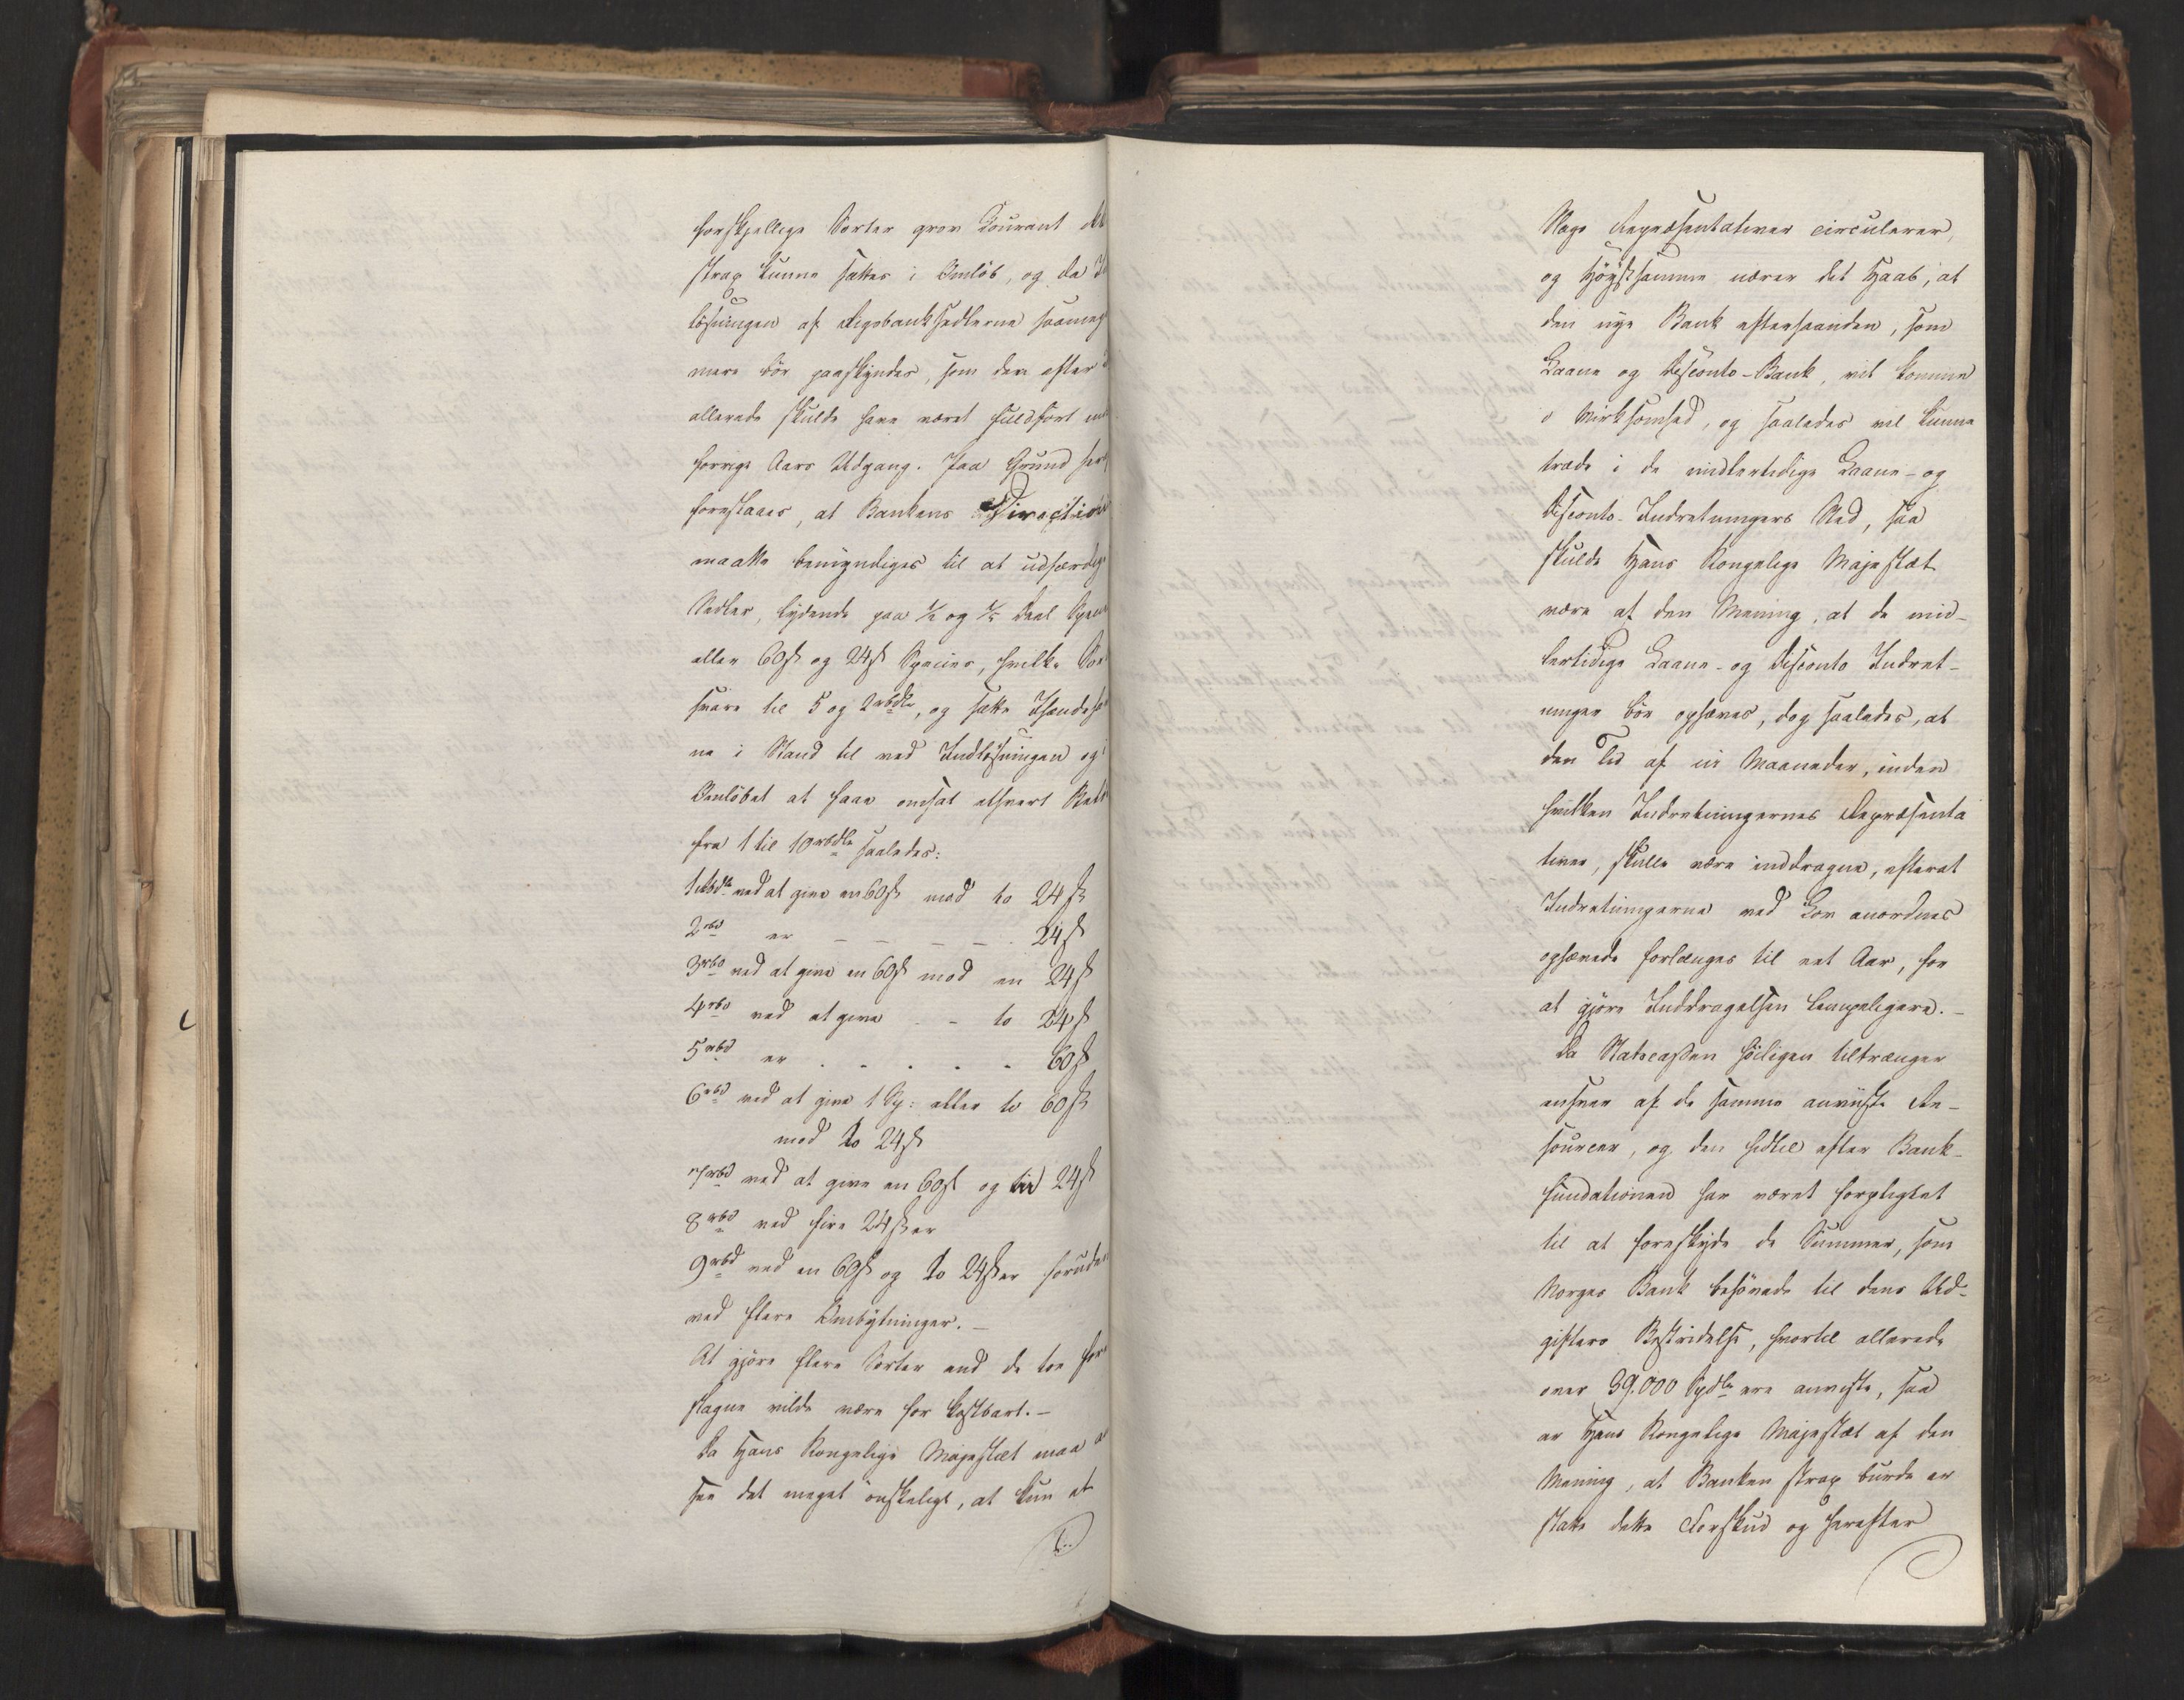 forskjellige Sorter grov Courant ikke
strax kunne sættes i Omløb, og da
løsningen af Rigsbanksedlerne saameget
mere bør paaskyndes, som den efter
allerede skulde have været fuldført
forrige Aars Udgang. Paa Grund her
foreslaaes, at Bankens Direction
maatte bemyndiges til at udfærdige
Sedler, lydende paa ½ og ⅕ Deel Species
eller 60s og 24s Species, hvilke
svare til 5 og 2 rbdlr, og sætte
ne i Stand til ved Indløsningen og i
Omløbet at faae omsat ethvert
fra 1 til 10 rbdlr saaledes:
1 Rbdlr ved at give en 60s mod to 24s
2 rbd er – – – – 24s
3 rbd ved at give en 60s mod en 24s
4 rbd ved at give – – to 24s
5 rbd er . . . . . 60s
6 rbd ved at give 1 Sp: eller to 60s
mod to 24s
7 rbd ved at give en 60s og en 24s
8 rbd ved fire 24s er
9 rbd ved en 60s og to 24s er foruden
ved flere Ombytninger. –
At gjøre flere Sorter end de toe fore
slagne vilde være for kostbart. –
Da Hans Kongelige Majestæt maa
see det meget ønskeligt, at kun et
Slags Repræsentativer circulerer,
og Høystsamme nærer det Haab, at
den nye Bank efterhaanden, som
Laane og Disconto-Bank, vil komme
i Virksomhed, og saaledes vil kunne
træde i de midlertidige Laane- og
Disconto-Indretningers Sted, saa
skulde Hans Kongelige Majestæt
være af den Mening, at de mid-
lertidige Laane- og Disconto Indret-
ninger bør ophæves, dog saaledes, at
den Tid af Maaneder, inden
hvilken Indretningernes Repræsenta
tiver, skulle være inddragne, efterat
Indretningerne ved Lov anordnes
ophævede forlænges til eet Aar, for
at gjøre Inddragelsen lempeligere. –
Da Statscassen høiligen tiltrænger
enhver af de samme anviiste Re-
sourcer, og den hidtil efter Bank-
fundationen har været forpligtet
til at forskyde de Summer, som
Norges Bank behøvede til dens Ud-
gifters Bestridelse, hvortil allerede
over 39.000 Spdlr ere anviste, saa
er Hans Kongelige Majestæt af den
Mening, at Banken strax burde er
statte dette Forskud og herefter